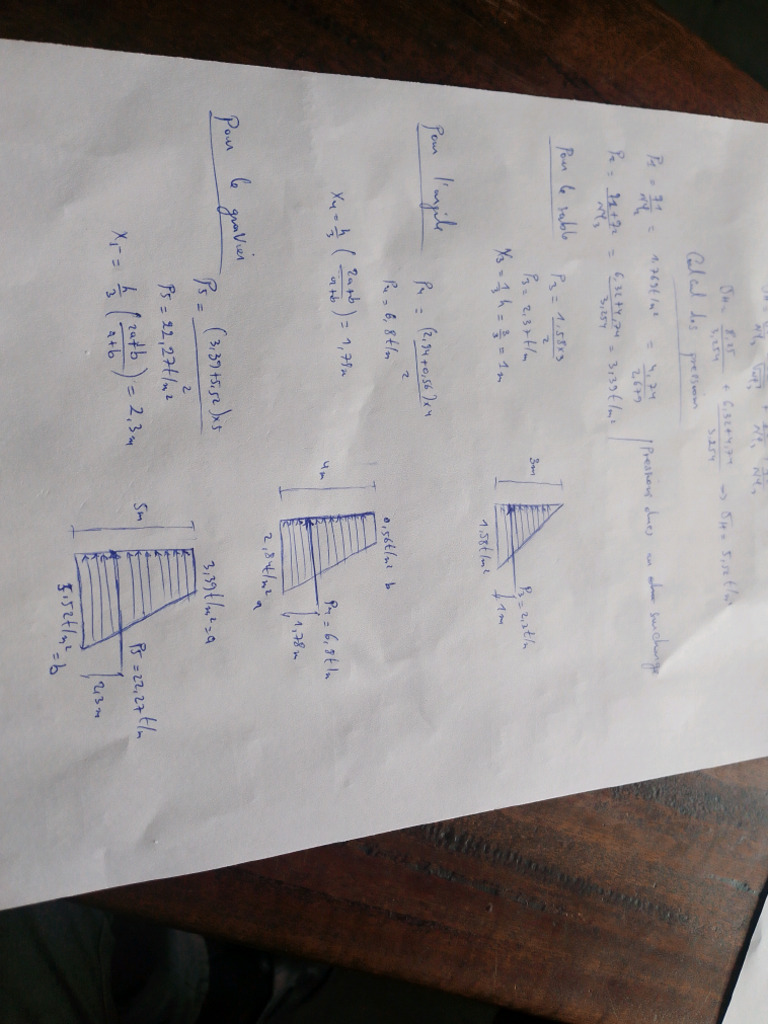 σH = 8x5/3,254 + 6,32+4,74/3,254 => σH = 5,52t/m²
Calcul des pressions
P1 = q1/Nφ1 = 1,769t/m² = 4,74/2,679
P2 = q1+q2/Nφ3 = 6,32+4,74/3,254 = 3,39t/m²
Pour le sable
P3 = 1,58x3/2
P3 = 2,37t/m
X3 = 1/3 h = 3/3 = 1m
3m
1,58t/m²
P3 = 2,37t/m
1m
Pour l'argile
P4 = (2,84+0,56)x4/2
P4 = 6,8t/m
X4 = h/3 (2a+b/a+b) = 1,78m
4m
0,56t/m² b
2,84t/m² a
P4 = 6,8t/m
1,78m
Pour le gravier
P5 = (3,39+5,52)x5/2
P5 = 22,27t/m²
X5 = h/3 (2a+b/a+b) = 2,3m
5m
3,39t/m² = a
5,52t/m² = b
P5 = 22,27t/m
2,3m